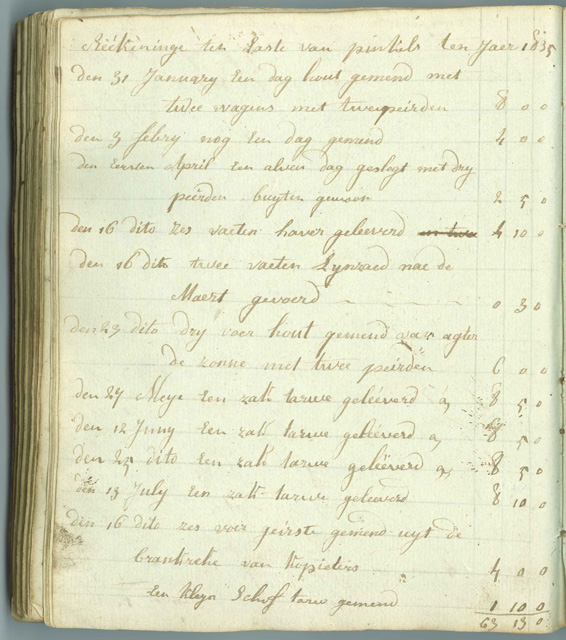 Reékeninge ten Laste van pintels ten Jaer 1835
den 31 January Een dag hout gemend met
twee wagens met twee peirden 8 0 0
den 3 febry nog Een dag gemend 4 0 0
den Eersten April Een alven dag geslegt met dry
peirden buyten gewoon 2 5 0
den 16 dito zes vaeten haver geleéverd 4 10 0
den 16 dito twee vaeten Lynzaed nae de
Maert gevoerd 0 3 0
den 23 dito dry voer hout gemend van agter
de zonne met twee peirden 6 0 0
den 27 Meye Een zak tarwe geleéverd a 8 5 0
den 12 Juny Een zak tarwe geleéverd a 8 5 0
den 25 dito Een zak tarwe geleéverd a 8 5 0
den 13 July Een zak tarwe geleeverd 8 10 0
den 16 dito zes voer geirste gemend uyt de
van Kopieters 4 0 0
Een kleyn Schof tarw gemend 1 10 0
63 13 0